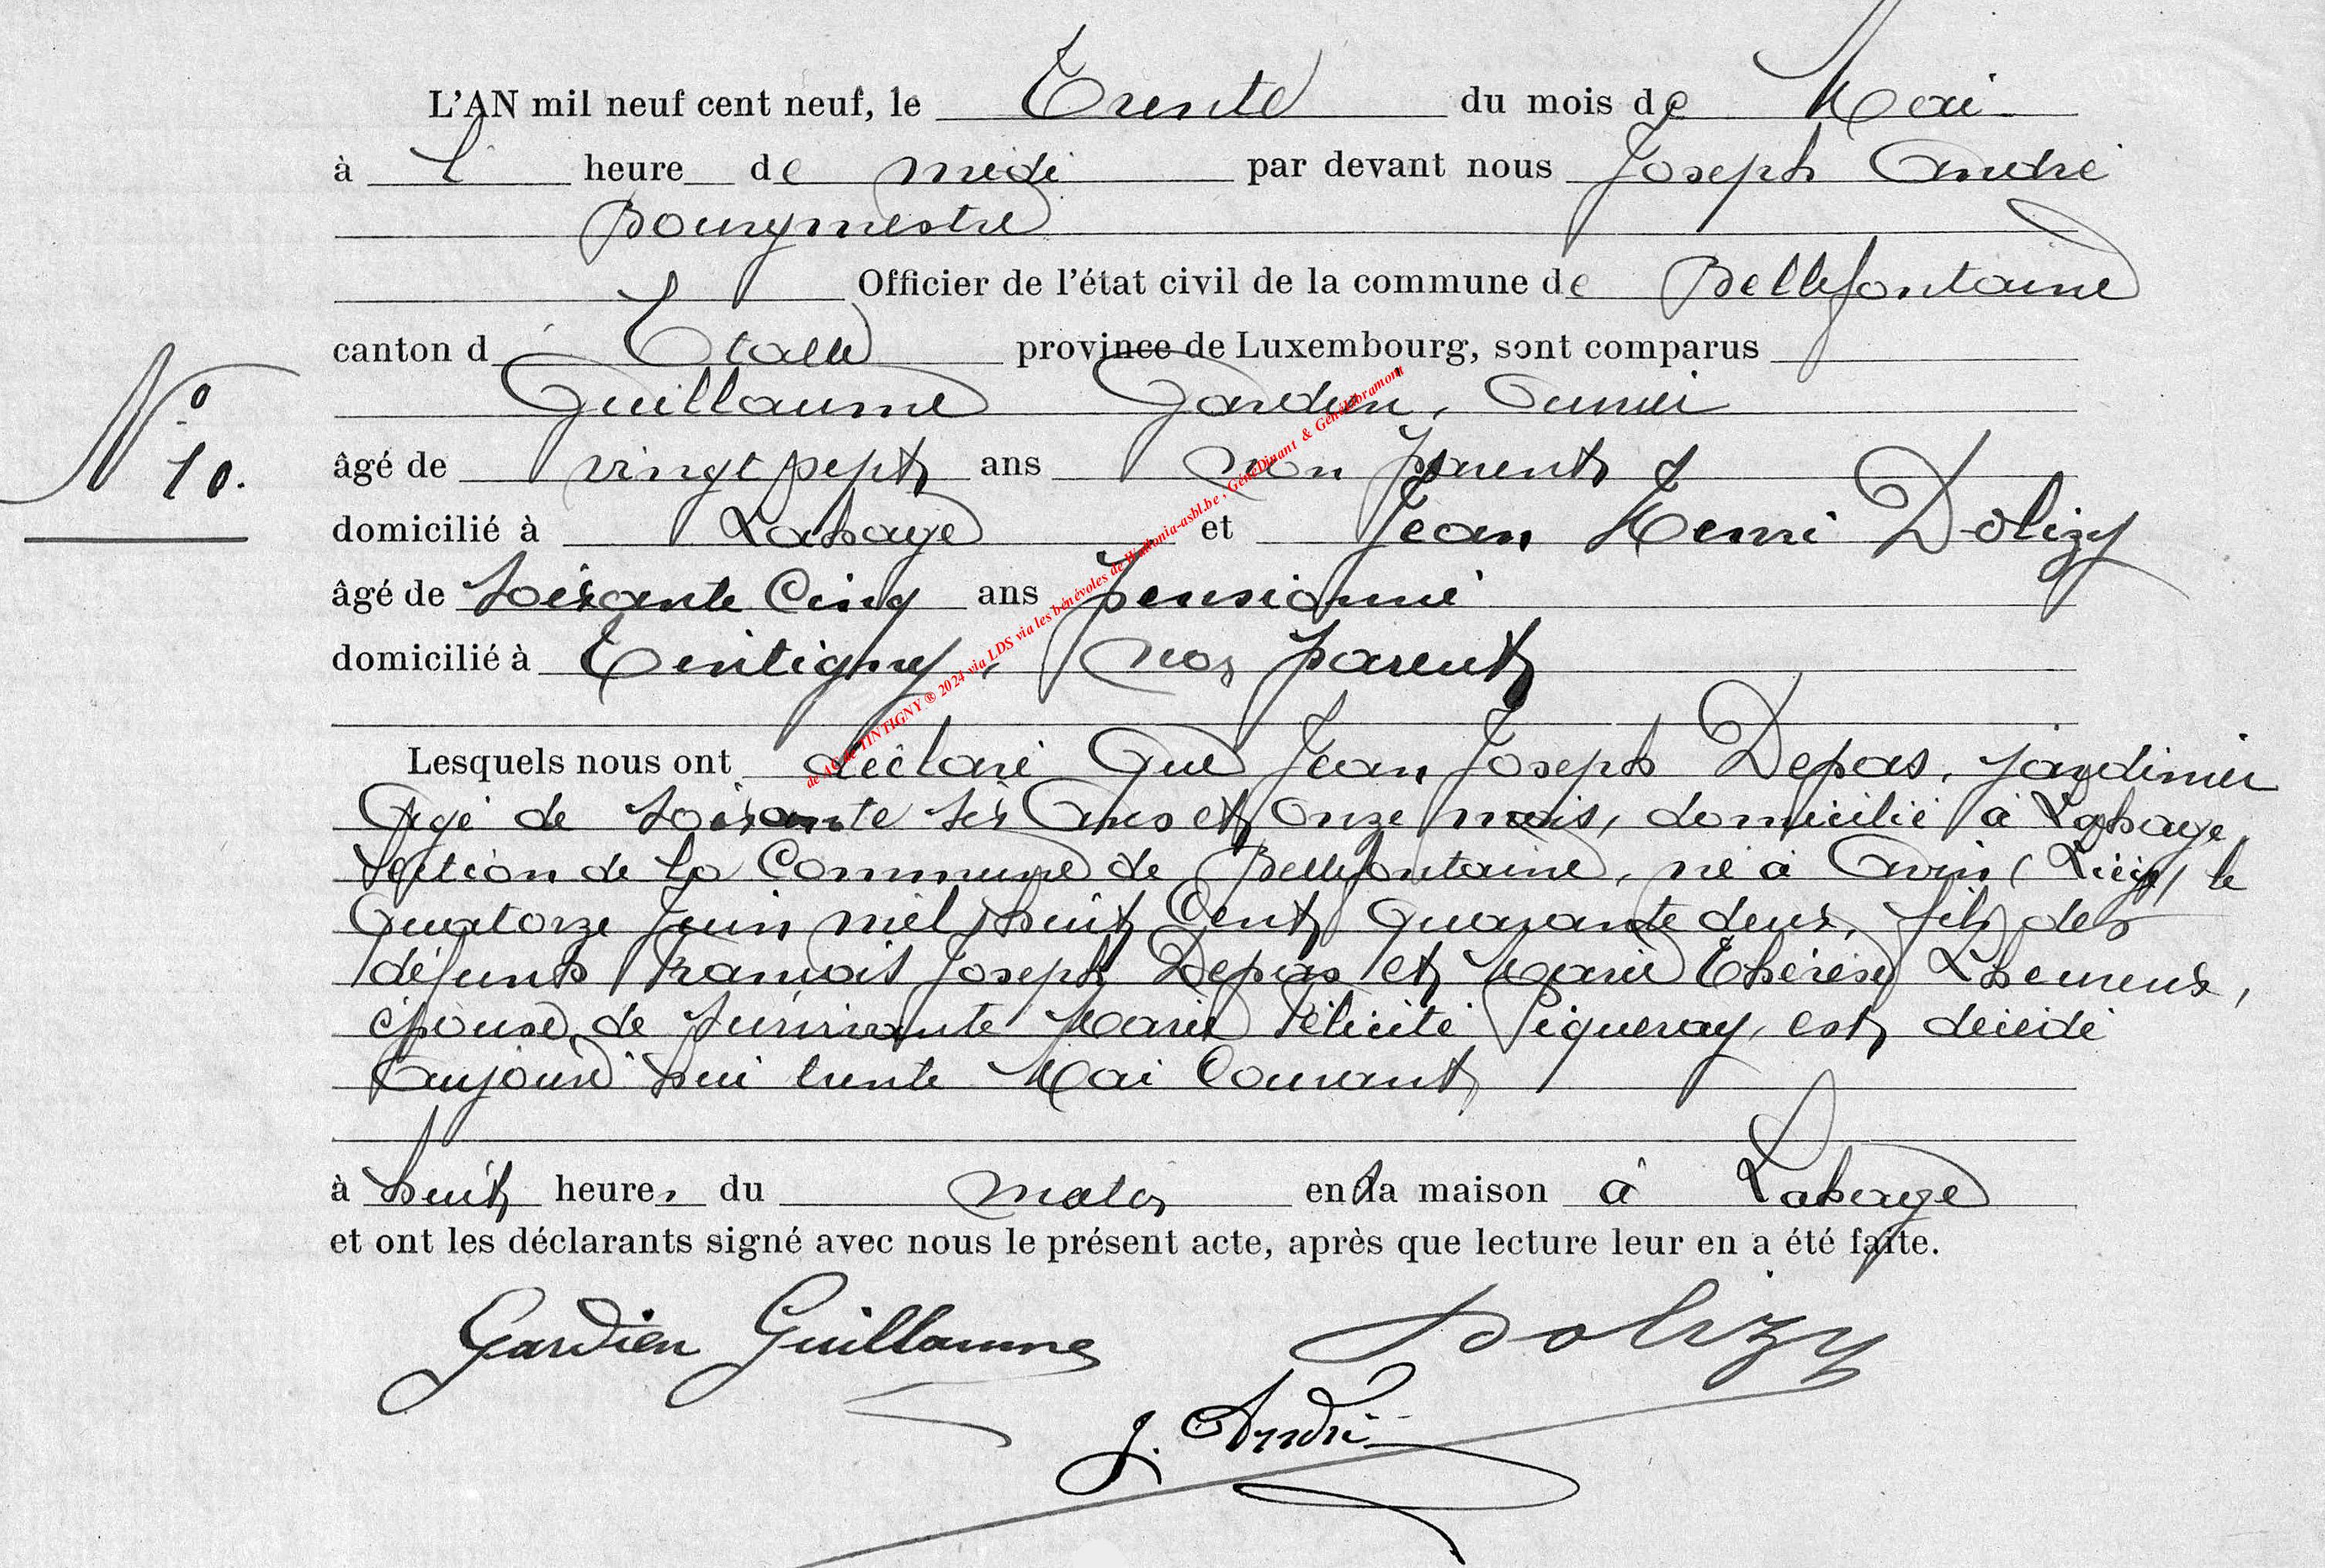 L'AN mil neuf cent neuf, le Trente du mois de Mai
à l' heure de midi par devant nous Joseph André
Bourgmestre
Officier de l'état civil de la commune de Bellefontaine
canton d' Etalle province de Luxembourg, sont comparus
Guillaume Gardien, Ouvrier
N° 10.
âgé de vingt sept ans non parent
domicilié à Lahage et Jean Henri Dolizy
âgé de soixante cinq ans pensionné
domicilié à Tintigny, non parent
Lesquels nous ont déclaré que Jean Joseph Depas, jardinier
Agé de soixante six Ans et onze mois, domicilié à Lahage
Section de la Commune de Bellefontaine, né à Avin (Liège) le
Quatorze Juin mil huit Cent quarante deux, fils des
défunts Francois Joseph Depas et Marie Thérèse Lheureux,
épouse de survivante Marie Félicité Piqueray, est décédé
aujourd'hui trente Mai Courant
à huit heures du matin en la maison à Lahage
et ont les déclarants signé avec nous le présent acte, après que lecture leur en a été faite.
Gardien Guillaume Dolizy
J. André
de AC de TINTIGNY ® 2024 via LDS via les bénévoles de Wallonia-asbl.be, GénéDinant & GénéLibramont